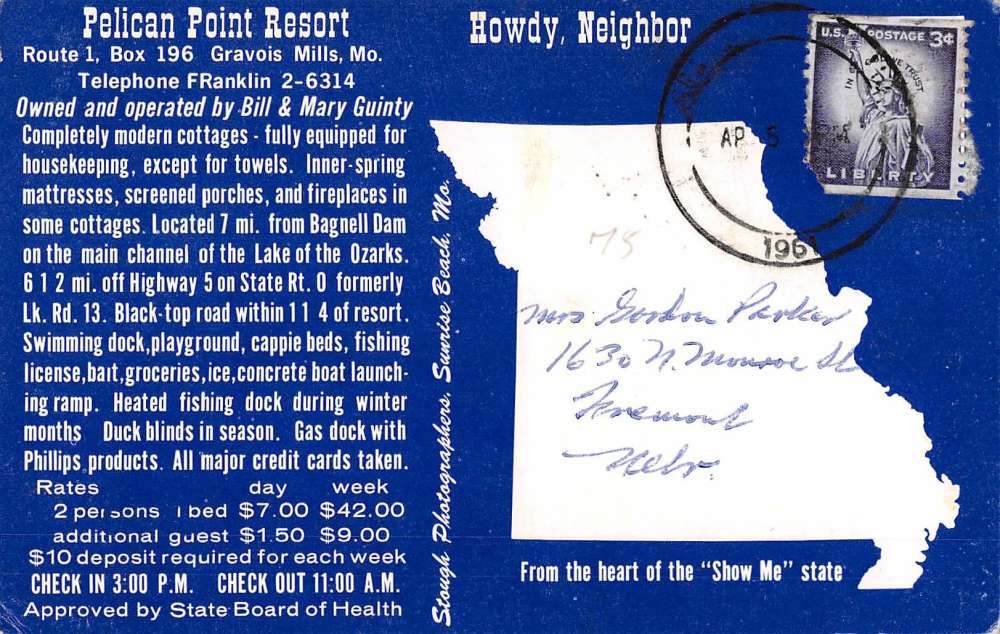 Pelican Point Resort
Route 1, Box 196 Gravois Mills, Mo.
Telephone FRanklin 2-6314
Owned and operated by Bill & Mary Guinty
Completely modern cottages - fully equipped for
housekeeping, except for towels. Inner-spring
mattresses, screened porches, and fireplaces in
some cottages. Located 7 mi. from Bagnell Dam
on the main channel of the Lake of the Ozarks.
6 1 2 mi. off Highway 5 on State Rt. O formerly
Lk. Rd. 13. Black-top road within 1 1 4 of resort.
Swimming dock, playground, cappie beds, fishing
license, bait, groceries, ice, concrete boat launch-
ing ramp. Heated fishing dock during winter
months Duck blinds in season. Gas dock with
Phillips products. All major credit cards taken.
Rates day week
2 persons 1 bed $7.00 $42.00
additional guest $1.50 $9.00
$10 deposit required for each week
CHECK IN 3:00 P.M. CHECK OUT 11:00 A.M.
Approved by State Board of Health
Stough Photographers, Sunrise Beach, Mo.
Howdy, Neighbor
U.S. POSTAGE 3¢
IN GOD WE TRUST
LIBERTY
AP 5
1961
75
Mrs Gordon Parker
1630 N. Monroe St
Fremont
Nebr.
From the heart of the "Show Me" state